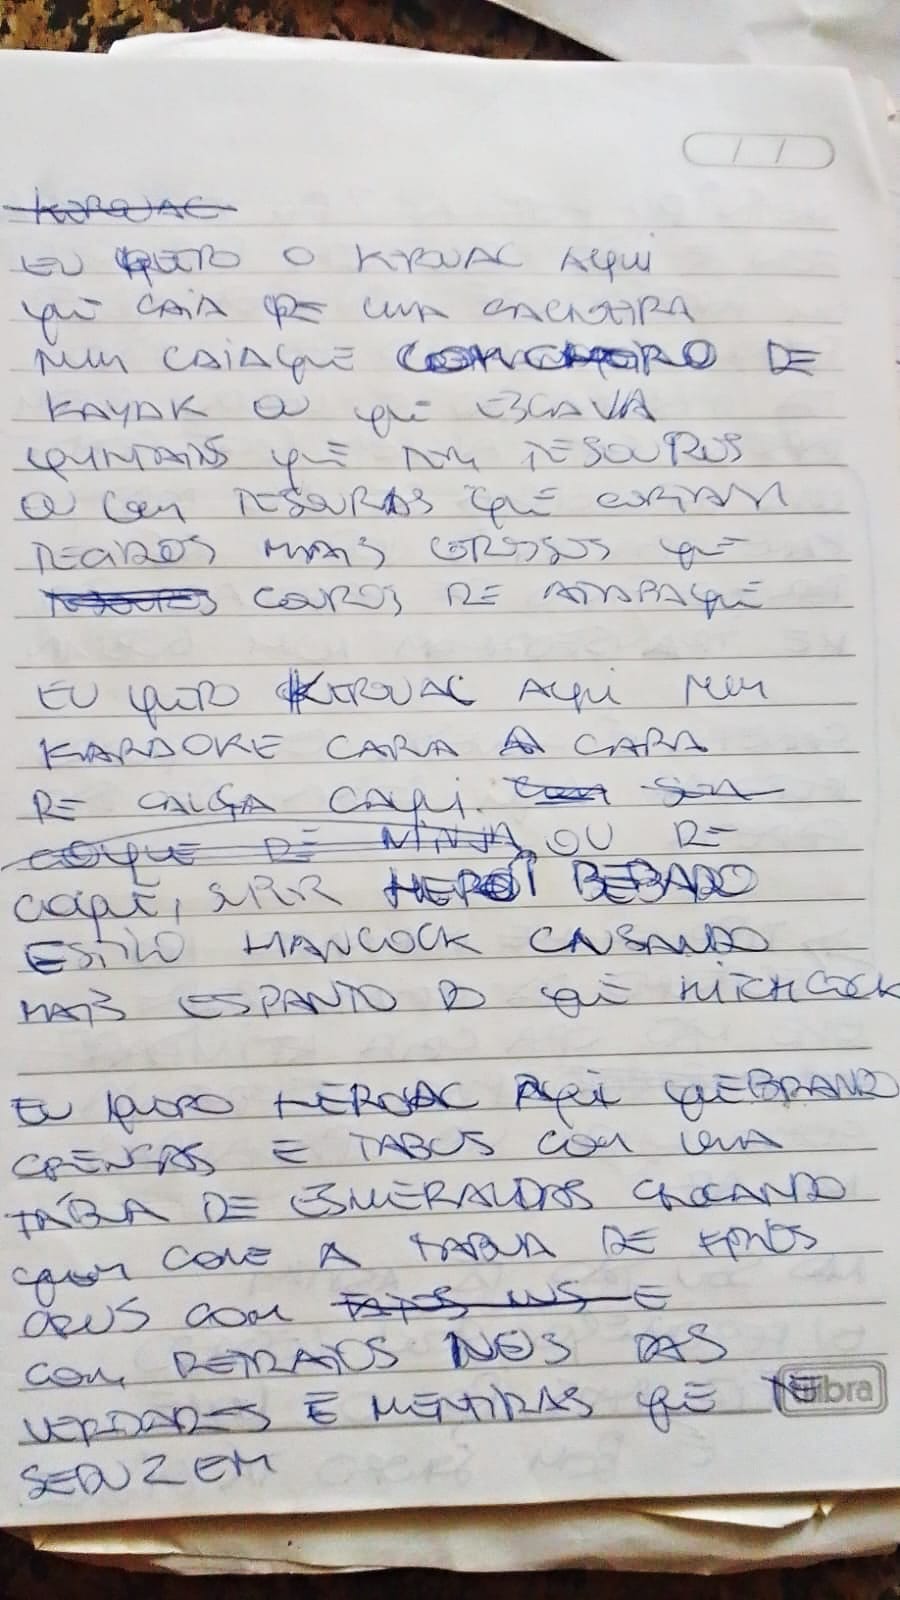 KEROUAC
EU QUERO O KEROUAC AQUI
QUE CAIA DE UMA CACHOEIRA
NUM CAIAQUE DE
KAYAK OU QUE ESCAVA
QUINTAIS QUE TEM TESOUROS
OU COM TESOURAS QUE CORTAM
TECIDOS MAIS GROSSOS QUE
COUROS DE ATABAQUE
EU QUERO KEROUAC AQUI NUM
KARAOKE CARA A CARA
DE CALÇA CAQUI. COM SEU
COQUE DE NINJA OU DE
COQUE, SER HERÓI BEBADO
ESTILO HANCOCK CAUSANDO
MAIS ESPANTO DO QUE HITCHCOCK
EU QUERO KEROUAC AQUI QUEBRANDO
CRENÇAS E TABUS COM UMA
TÁBUA DE ESMERALDAS CHOCANDO
QUEM COME A TABUA DE FRIOS
CRUS COM FATOS NUS E
COM RETRATOS NUS DAS
VERDADES E MENTIRAS QUE TE
SEDUZEM
tilibra